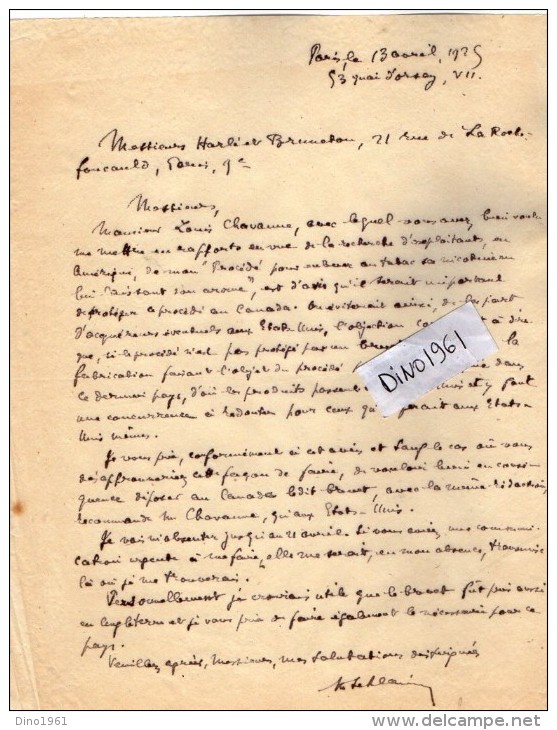 Paris, le 13 avril, 1925
53 quai d'orsay, VII.
Messieurs Harlé et Bruneton, 21 rue de La Roche-
foucauld, Paris, 9e
Messieurs,
Monsieur Louis Chavanne, avec lequel vous avez bien voulu
me mettre en rapports en vue de la recherche d'exploitants, en
Amérique, de mon "Procédé pour enlever au tabac sa nicotine en
lui laissant son arome", est d'avis qu'il serait important
de protéger ce procédé au Canada. On éviterait ainsi, de la part
d'acquéreurs éventuels aux Etats-Unis, l'objection à di-
que, si le procédé n'est pas protégé par un la
fabrication faisant l'objet du procédé dans
ce dernier pays, d'où les produits et y font
une concurrence à redouter pour ceux aux Etats-
Unis mêmes.
Je vous prie, conformément à cet avis et sauf le cas où vous
désapprouveriez cette façon de faire, de vouloir bien en consé-
quence déposer au Canada ledit brevet, avec la même rédaction,
recommande M. Chavanne, qu'aux Etats-Unis.
Je vais m'absenter jusqu'au 21 avril. Si vous aviez une communi-
cation urgente à me faire, elle me serait, en mon absence, transmise
là où je me trouverais.
Personnellement je croirais utile que le brevet fût pris aussi
en Angleterre et je vous prie de faire également le nécessaire pour ce
pays.
Veuillez agréer, Messieurs, mes salutations distinguées
DiNO1961
Dino1961
www.delcampe.net